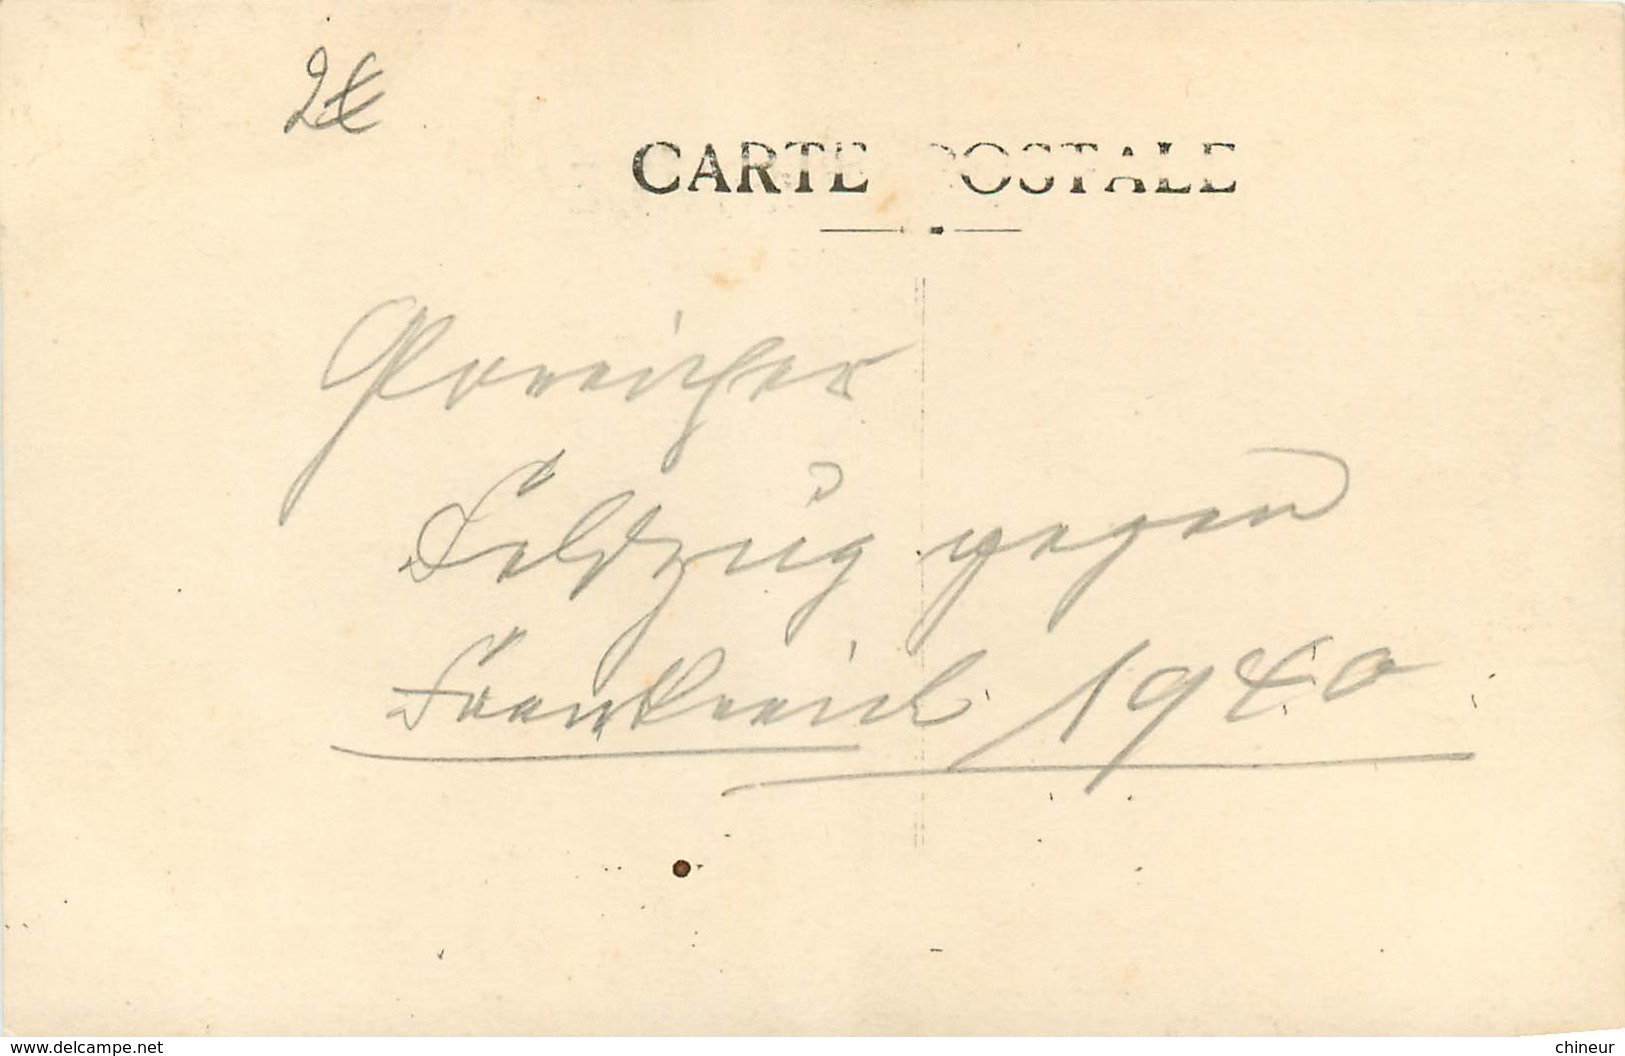 2€
CARTE POSTALE
Feldzug gegen
Frankreich 1940
www.delcampe.net
chineur